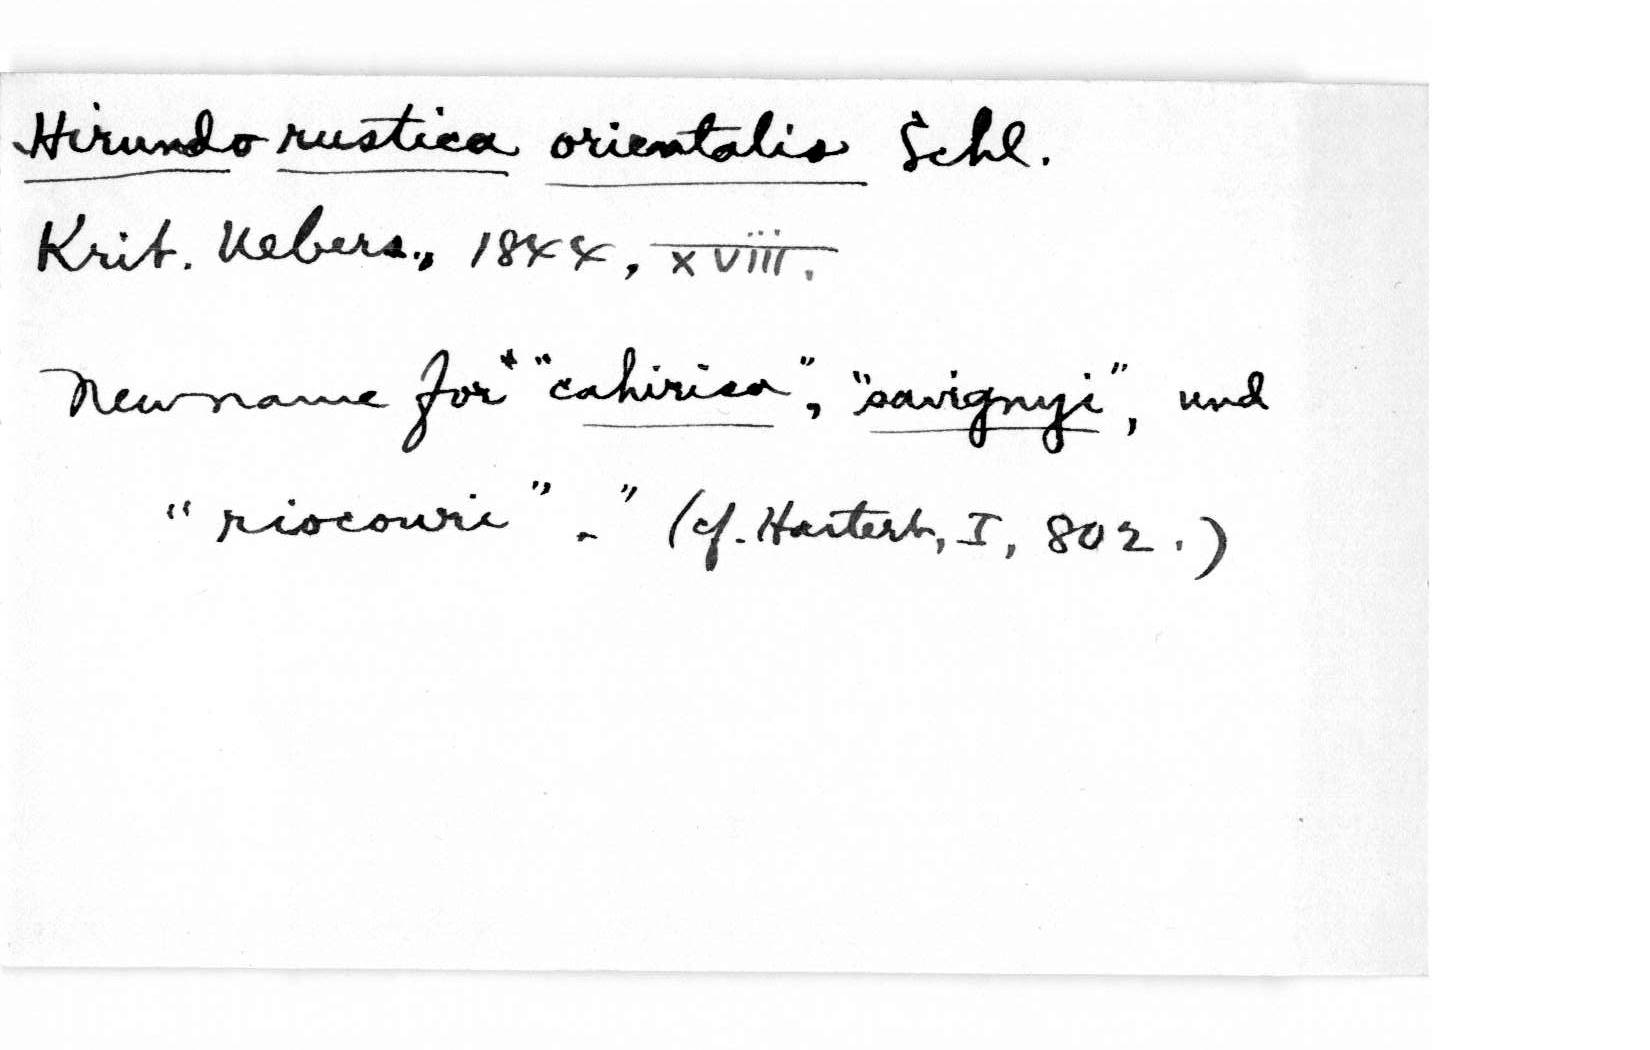 Hirundo rustica orientalis Schl.
Krit. Uebers., 1844, xviii.
New name for "“cahirica”, “savignyi”, und
“riocouri”." (cf. Hartert, I, 802.)